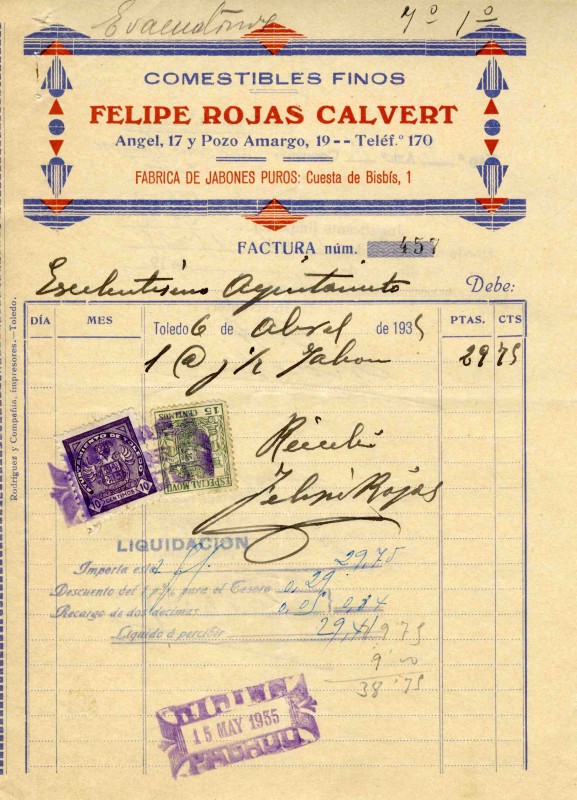 7º 1º
COMESTIBLES FINOS
FELIPE ROJAS CALVERT
Angel, 17 y Pozo Amargo, 19 -- Teléf.º 170
FABRICA DE JABONES PUROS: Cuesta de Bisbís, 1
FACTURA núm. 457
Excelentisimo Ayuntamiento Debe:
DÍA MES Toledo 6 de Abril de 1935 PTAS. CTS
1 @ y ½ Jabon 29 75
AYUNTAMIENTO DE TOLEDO
10 10
15 CENTIMOS
ESPECIAL MOVIL
Recibi
Felipe Rojas
LIQUIDACION
Importa esta 29,75
Descuento del 1 p% para el Tesoro 0,29
Recargo de dos decimas 0,05 0,34
Liquido á percibir 29,41
9 75
9 00
38 75
15 MAY 1935
PAGADO
Rodríguez y Compañía, impresores.—Toledo.